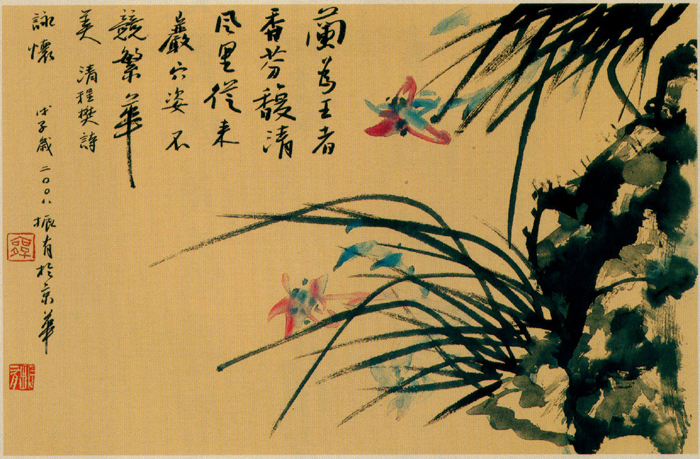 蘭為王者
香芬馥清
風里從来
巖穴姿不
競繁華
美 清程樊詩
詠懷
戊子歲二〇〇八振有於京華